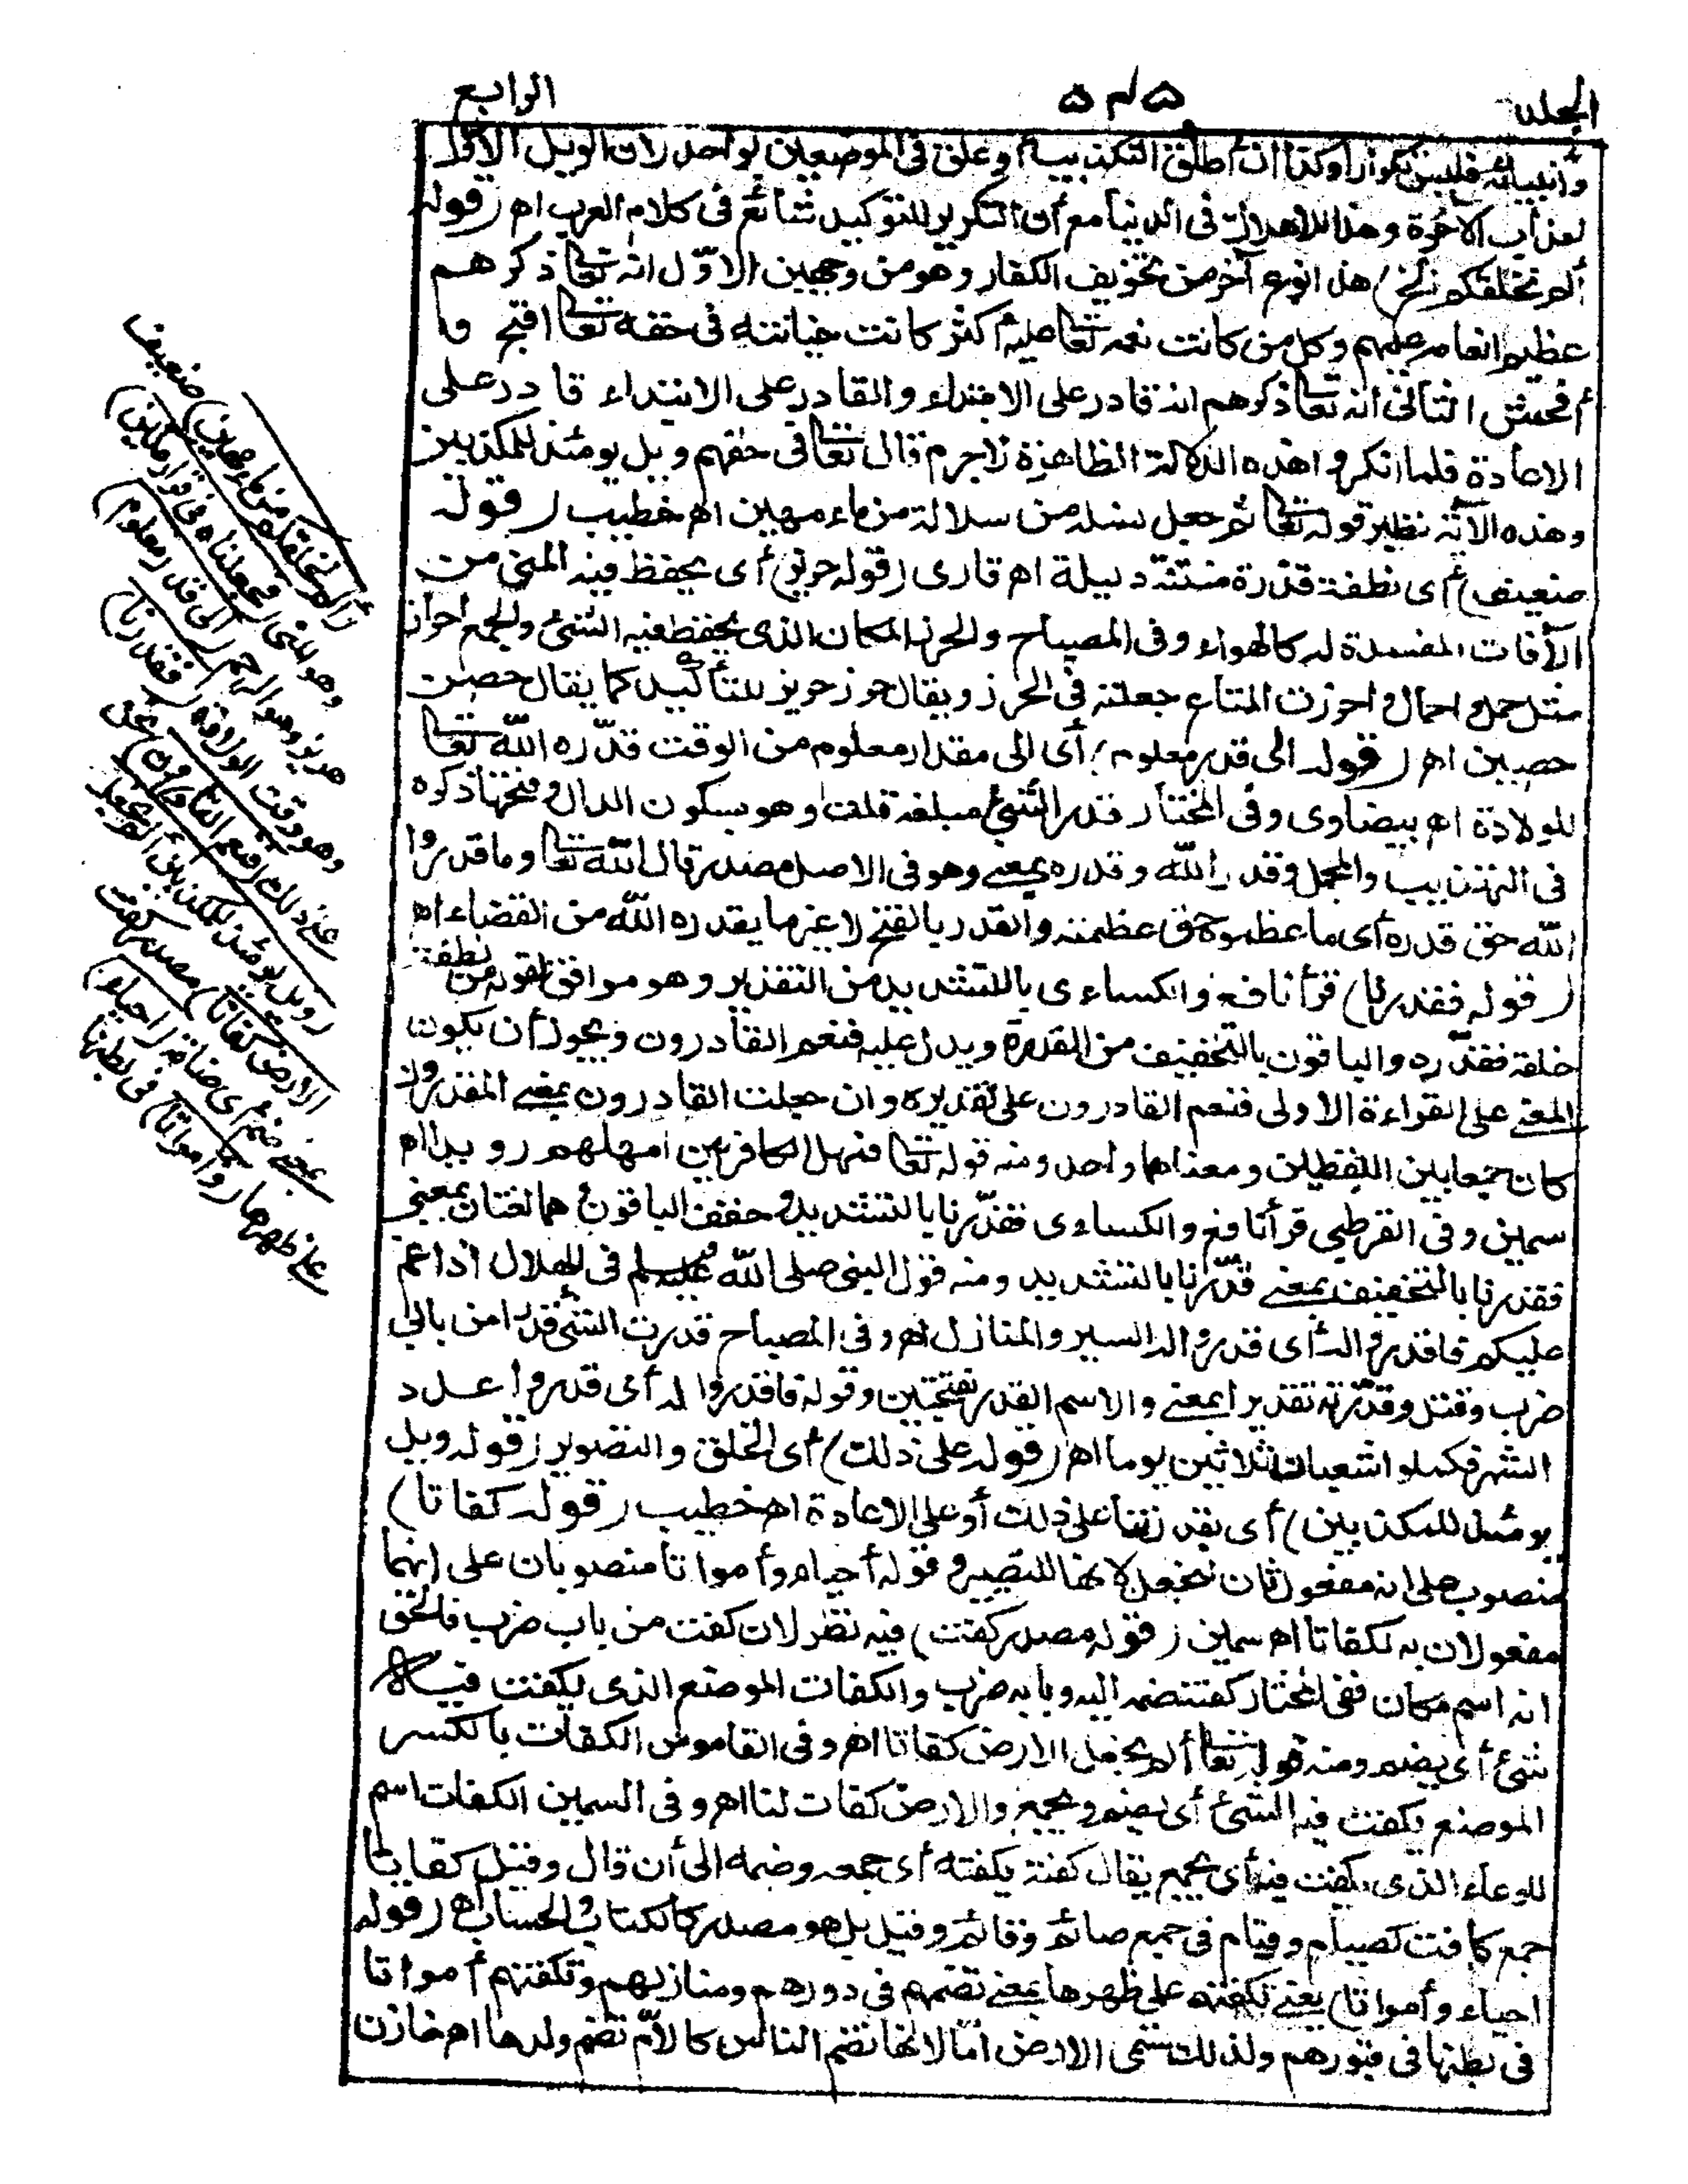 الجلد
٥٤٥
الرابع
وأنبيائه فليس تكرارا وكذا ان أطلق التكذيب أو علق فى الموضعين بواحد لان الويل الاول
لعذاب الآخرة وهذا للاهلاك فى الدنيا مع أن التكرير للتوكيد شائع فى كلام العرب اه (قوله
ألم نخلقكم الخ) هذا نوع آخر من تخويف الكفار وهو من وجهين الاوّل انه تعا ذكرهم
عظيم انعامه عليهم وكل من كانت نعمه تعا عليه أكثر كانت خيانته فى حقه تعا اقبح وا
أفحش الثانى أنه تعا ذكرهم انه قادر على الابتداء والقادر على الابتداء قادر على
الاعادة فلما انكروا هذه الدلالة الظاهرة لاجرم قال تعا فى حقهم ويل يومئذ للمكذبين
وهذه الآية نظير قوله تعا ثم جعل نسله من سلالة من ماء مهين اه خطيب (قوله
ضعيف) أى نطفة قذرة منتنة ذليلة اه قارى (قوله حريز) أى يحفظ فيه المنى من
الآفات المفسدة له كالهواء وفى المصباح والحرز المكان الذى يحفظ فيه الشئ والجمع احراز
مثل حمل واحمال واحرزت المتاع جعلته فى الحرز ويقال حرز حريز للتأكيد كما يقال حصن
حصين اه (قوله الى قدر معلوم) أى الى مقدار معلوم من الوقت قدّره الله تعا
للولادة اه بيضاوى وفى المختار قدر الشئ مبلغه قلت وهو بسكون الدال وفتحها ذكره
فى التهذيب والمجمل وقدر الله وقدره بمعنے وهو فى الاصل مصدر قال الله تعا وما قدروا
الله حق قدره أى ما عظموه حق عظمته والقدر بالفتح لا غير ما يقدره الله من القضاء اه
(قوله فقدرنا) قرأ نافع والكساءى بالتشديد من التقدير وهو موافق لقوله من نطفة
خلقه فقدّره والباقون بالتخفيف من القدرة ويدل عليه فنعم القادرون ويجوز أن يكون
المعنے على القراءة الاولى فنعم القادرون على تقديره وان جعلت القادرون بمعنے المقدرون
كان جمعا بين اللفظين ومعناهما واحد ومنه قوله تعا فمهل الكافرين امهلهم رويدا اه
سمين وفى القرطبى قرأ نافع والكساءى فقدّرنا بالتشديد وخفف الباقون وهما لغتان بمعنى
فقدرنا بالتخفيف بمعنے قدّرنا بالتشديد ومنه قول النبى صلى الله عليه وسلم فى الهلال اذا غم
عليكم فاقدروا له أى قدروا له السير والمنازل اه وفى المصباح قدرت الشئ قدرا من بابى
ضرب وقتل وقدّرته تقديرا بمعنے والاسم القدر بفتحتين وقوله فاقدروا له أى قدروا عدد
الشهر فكملوا شعبان ثلاثين يوما اه (قوله على ذلك) أى الخلق والتصوير (قوله ويل
يومئذ للمكذبين) أى بقدرتنا على ذلك أو على الاعادة اه خطيب (قوله كفاتا)
منصوب على انه مفعول ثان لنجعل لانها للتصيير وقوله أحياء وأمواتا منصوبان على انهما
مفعولان به لكفاتا اه سمين (قوله مصدر كفت) فيه نظر لان كفت من باب ضرب فالحق
انه اسم مكان ففى المختار كفته ضمه اليه وبابه ضرب والكفات الموضع الذى يكفت فيه
شئ أى يضم ومنه قوله تعا ألم نجعل الارض كفاتا اه وفى القاموس الكفات بالكسر
الموضع يكفت فيه الشئ أى يضم ويجمع والارض كفات لنا اه وفى السمين الكفات اسم
للوعاء الذى يكفت فيه أى يجمع يقال كفته يكفته أى جمعه وضمه الى أن قال وقيل كفاتا
جمع كافت كصيام وقيام فى جمع صائم وقائم وقيل بل هو مصدر كالكتاب والحساب اه (قوله
احياء وأمواتا) يعنے تكفتهم على ظهرها بمعنے تضمهم فى دورهم ومنازلهم وتكفتهم أمواتا
فى بطنها فى قبورهم ولذلك تسمى الارض امّا لانها تضم الناس كالامّ تضم ولدها اه خازن
(ألم نخلقكم من ماء مهين) ضعيف
وهو المنى (فجعلناه فى قرار مكين)
حريز وهو الرحم (الى قدر معلوم)
وهو وقت الولادة (فقدرنا)
على ذلك (فنعم القادرون) نحن
(ويل يومئذ للمكذبين ألم نجعل
الارض كفاتا) مصدر كفت
بمعنے ضم أى ضامة (احياء)
على ظهرها (وأمواتا) فى بطنها